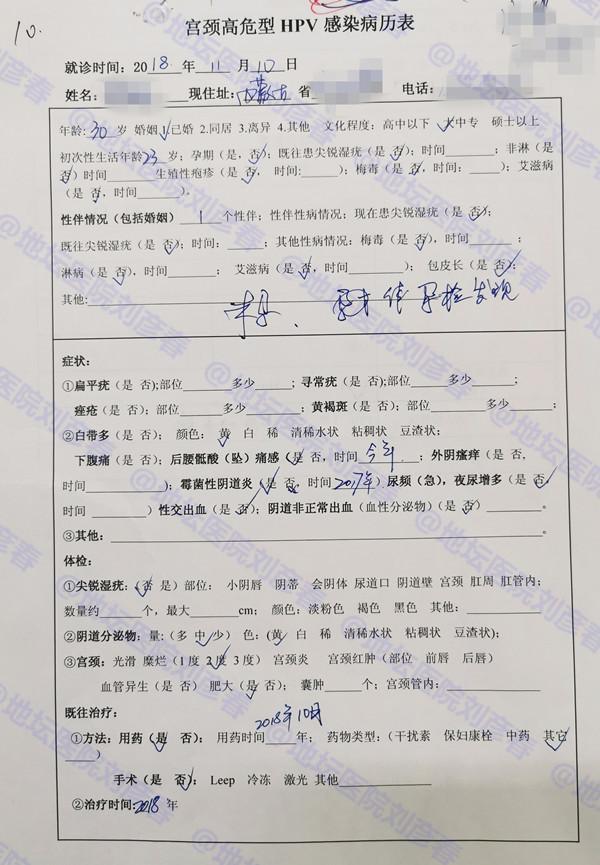 10.
宫颈高危型 HPV 感染病历表
就诊时间: 2018 年 11 月 10 日
姓名: 现住址: 内蒙古 省 电话:
年龄: 30 岁 婚姻 1.已婚 2.同居 3.离异 4.其他 文化程度: 高中以下 大中专 硕士以上
初次性生活年龄 23 岁; 孕期 (是, 否); 既往患尖锐湿疣 (是 否); 时间________; 非淋 (是
否) 时间________生殖性疱疹 (是 否, 时间:______); 梅毒 (是 否, 时间:_____); 艾滋病
(是 否, 时间______)。
性伴情况 (包括婚姻) 1 个性伴; 性伴性病情况; 现在患尖锐湿疣 (是 否);
既往尖锐湿疣 (是 否); 时间: _____; 其他性病情况: 梅毒 (是 否), 时间______ ;
淋病 (是 否), 时间______; 艾滋病 (是 否, 时间________); 包皮长 (是 否);
其他: 孕检发现
症状:
①扁平疣 (是 否);部位______多少______; 寻常疣 (是 否);部位______多少_____;
痤疮 (是 否); 部位______多少________; 黄褐斑 (是 否); 部位______多少________;
②白带多 (是 否); 颜色: 黄 白 稀 清稀水状 粘稠状 豆渣状;
下腹痛 (是 否); 后腰骶酸 (坠) 痛感 (是 否, 时间 今年 ; 外阴瘙痒 (是 否,
时间__________); 霉菌性阴道炎 (是 否, 时间 2017年) 尿频 (急), 夜尿增多 (是 否,
时间 ________) 性交出血 (是 否); 阴道非正常出血 (血性分泌物) (是 否) ________。
③其他: ________________________________________。
体检:
①尖锐湿疣: (否 是) 部位: 小阴唇 阴蒂 会阴体 尿道口 阴道壁 宫颈 肛周 肛管内;
数量约______个, 最大_______cm; 颜色: 淡粉色 褐色 黑色 其他: __________
②阴道分泌物: 量: (多 中 少) 色: (黄 白 稀 清稀水状 粘稠状 豆渣状);
③宫颈: 光滑 糜烂 (1 度 2 度 3 度) 宫颈炎 宫颈红肿 (部位 前唇 后唇)
血管异生 (是 否) 肥大 (是 否); 囊肿_____个; 宫颈管内: __________
既往治疗:
2018年10月
①方法: 用药 (是 否) 用药时间____年; 药物类型: (干扰素 保妇康栓 中药 其它
____)
手术 (是 否): Leep 冷冻 激光 其他____________
②治疗时间: 2018 年
@地坛医院刘彦春